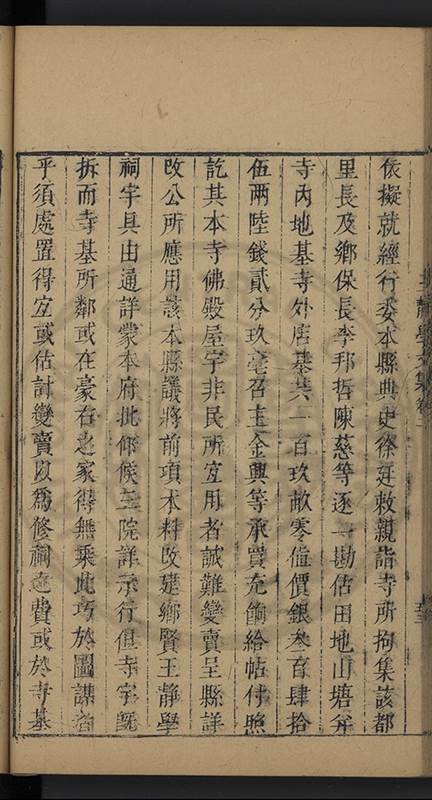 依擬就經行委本縣典史徐廷敕親詣寺所拘集該都
里長及鄉保長李邦哲陳慈等逐一勘估田地山塘并
寺內地基寺外店基共一百玖畝零值價銀叁百肆拾
伍兩陸錢貳分玖毫召主金興等承買充餉給帖付照
訖其本寺佛殿屋宇非民所宜用者誠難變賣呈縣詳
改公所應用該本縣議將前項木料改建鄉賢王靜學
祠宇具由通詳蒙本府批仰候三院詳示行但寺宇既
拆而寺基所鄰或在豪右之家得無乘此巧於圖謀者
乎須處置得宜或估討變賣以為修祠之費或於寺基
王靜學文集卷二